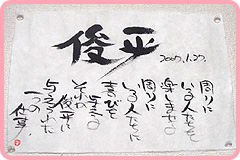 俊平
2007.1.27.
周りに
いる人たちを
楽しませる
周りに
いる人たちに
喜びを
与える
それが
俊平に
与えられた
一つの
仕事!